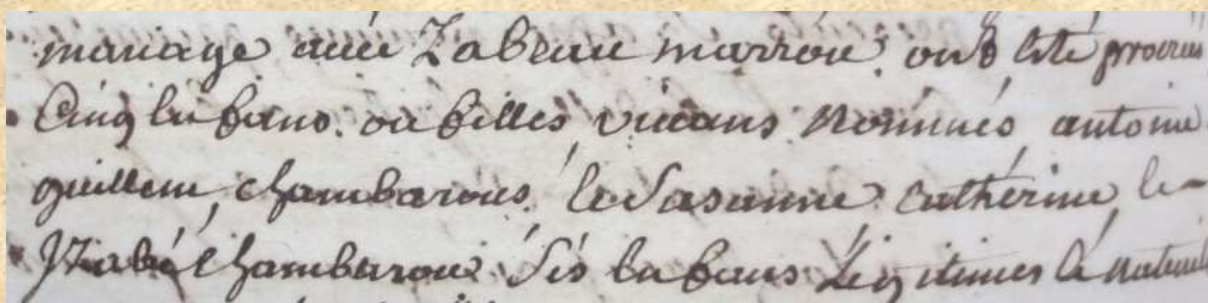 mariage avec Izabeau marron. ont eté procreés
Cinq enfans. ou filles, vivans nommés, antoine
guillem, chambarous, le Susanne catherine le
Izabé chambarous. Ses enfans légitimes lé naturels